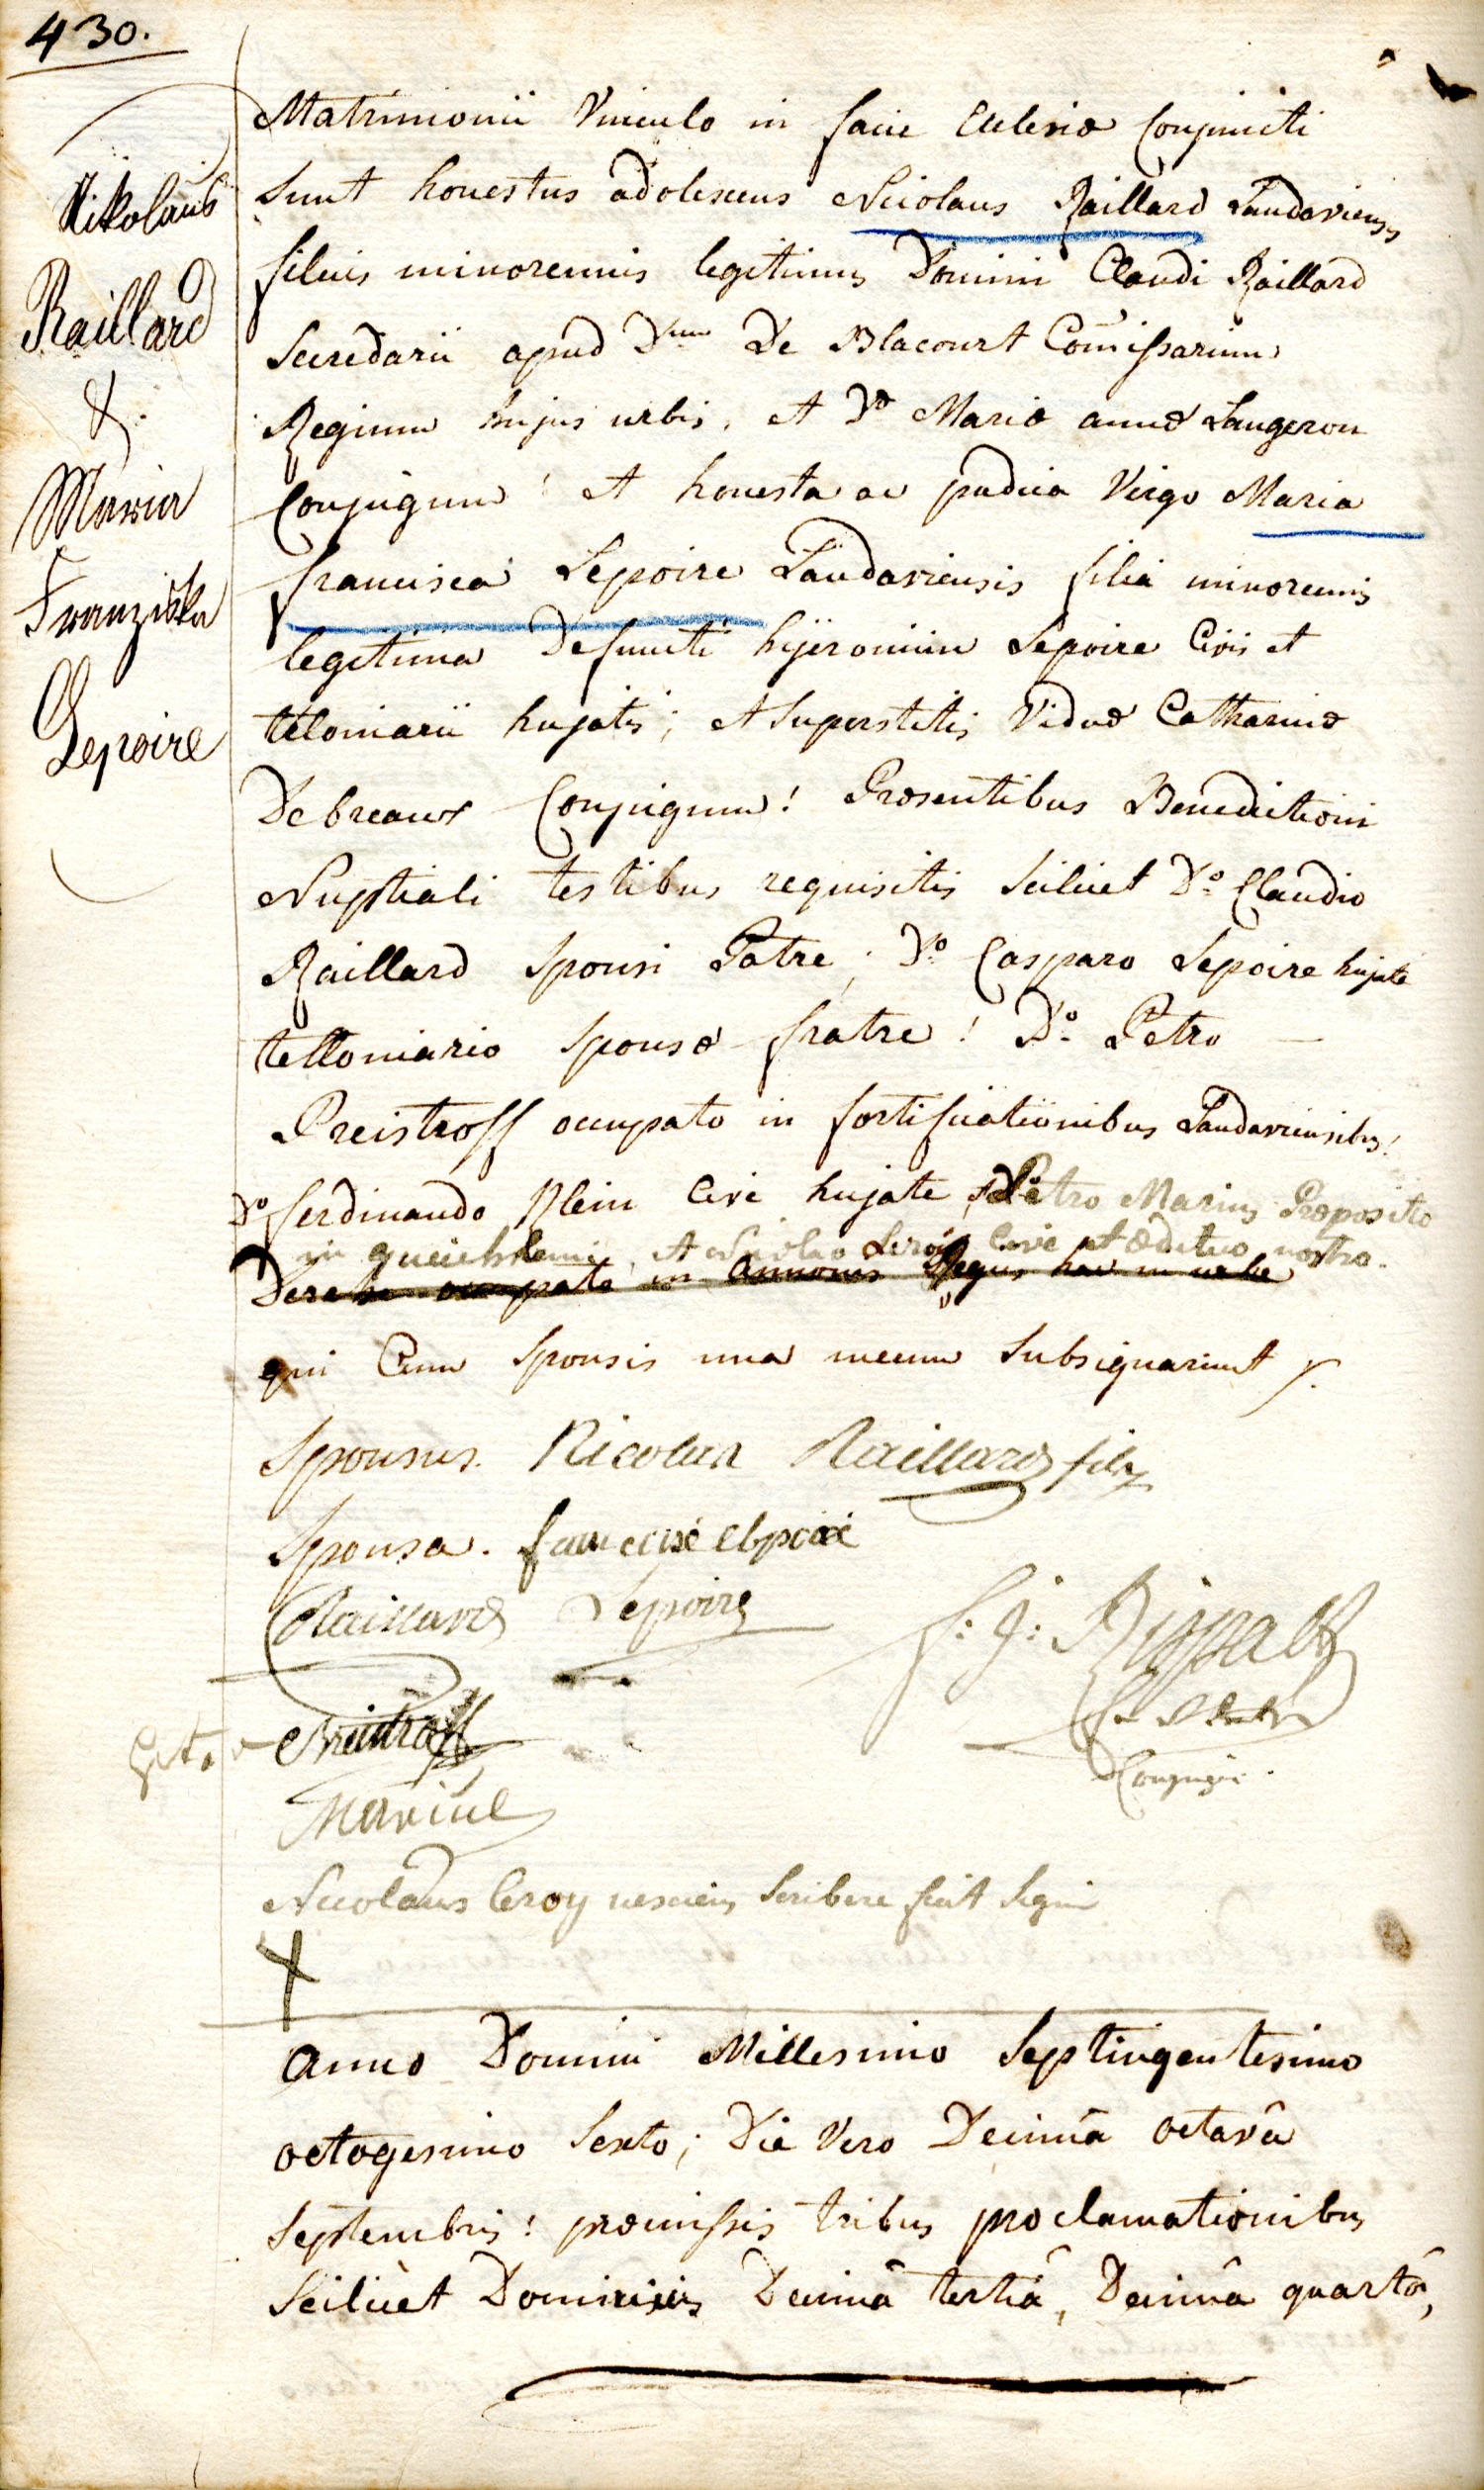 430.
Nikolaus
Raillard
&.
Maria
Franziska
Lepoire
Matrimonii Vinculo in facie Ecclesiæ Conjuncti
sunt honestus adolescens Nicolaus Raillard Landaviensis
filius minorennis legitimus Domini Claudi Raillard
Secredarii apud Dnum De Blacourt Com̃issarium
Regium hujus urbis, et Dæ Mariæ annæ Laugeron
Conjugum! et honesta ac pudica Virgo Maria
francisca Lepoire Landaviensis filia minorennis
legitima Defuncti hijeronimi Lepoire Civis et
teloniarii hujatis; et superstitis Viduæ Catharinæ
Debreaux Conjugum! Præsentibus Benedictioni
Nuptiali testibus requisitis scilicet Do. Claudio
Raillard sponsi Patre; Do. Casparo Lepoire hujate
telloniario sponsæ fratre! Do. Petro —
Preistroff occupato in fortificationibus Landaviensibus!
Do ferdinando Klein Cive hujate, Petro Marius Præposito
in queichheim, et Nicolao Leroy Cive et ædituo nostro.
occupato in annonis Regus hac in urbe
qui Cum sponsis una mecum subsignarunt
Sponsus. Nicolas Raillard fils
Sponsa. francoise lepoire
Raillard Lepoire
Preistroff
Marius
Nicolaus leroy nesciens scribere fecit signum
X
anno Domini Millesimo septingentesimo
octogesimo sexto; Die Vero Decimâ octavâ
septembris! præmissis tribus proclamationibus
scilicet Dominicis Decimâ tertiâ, Decimâ quartâ,